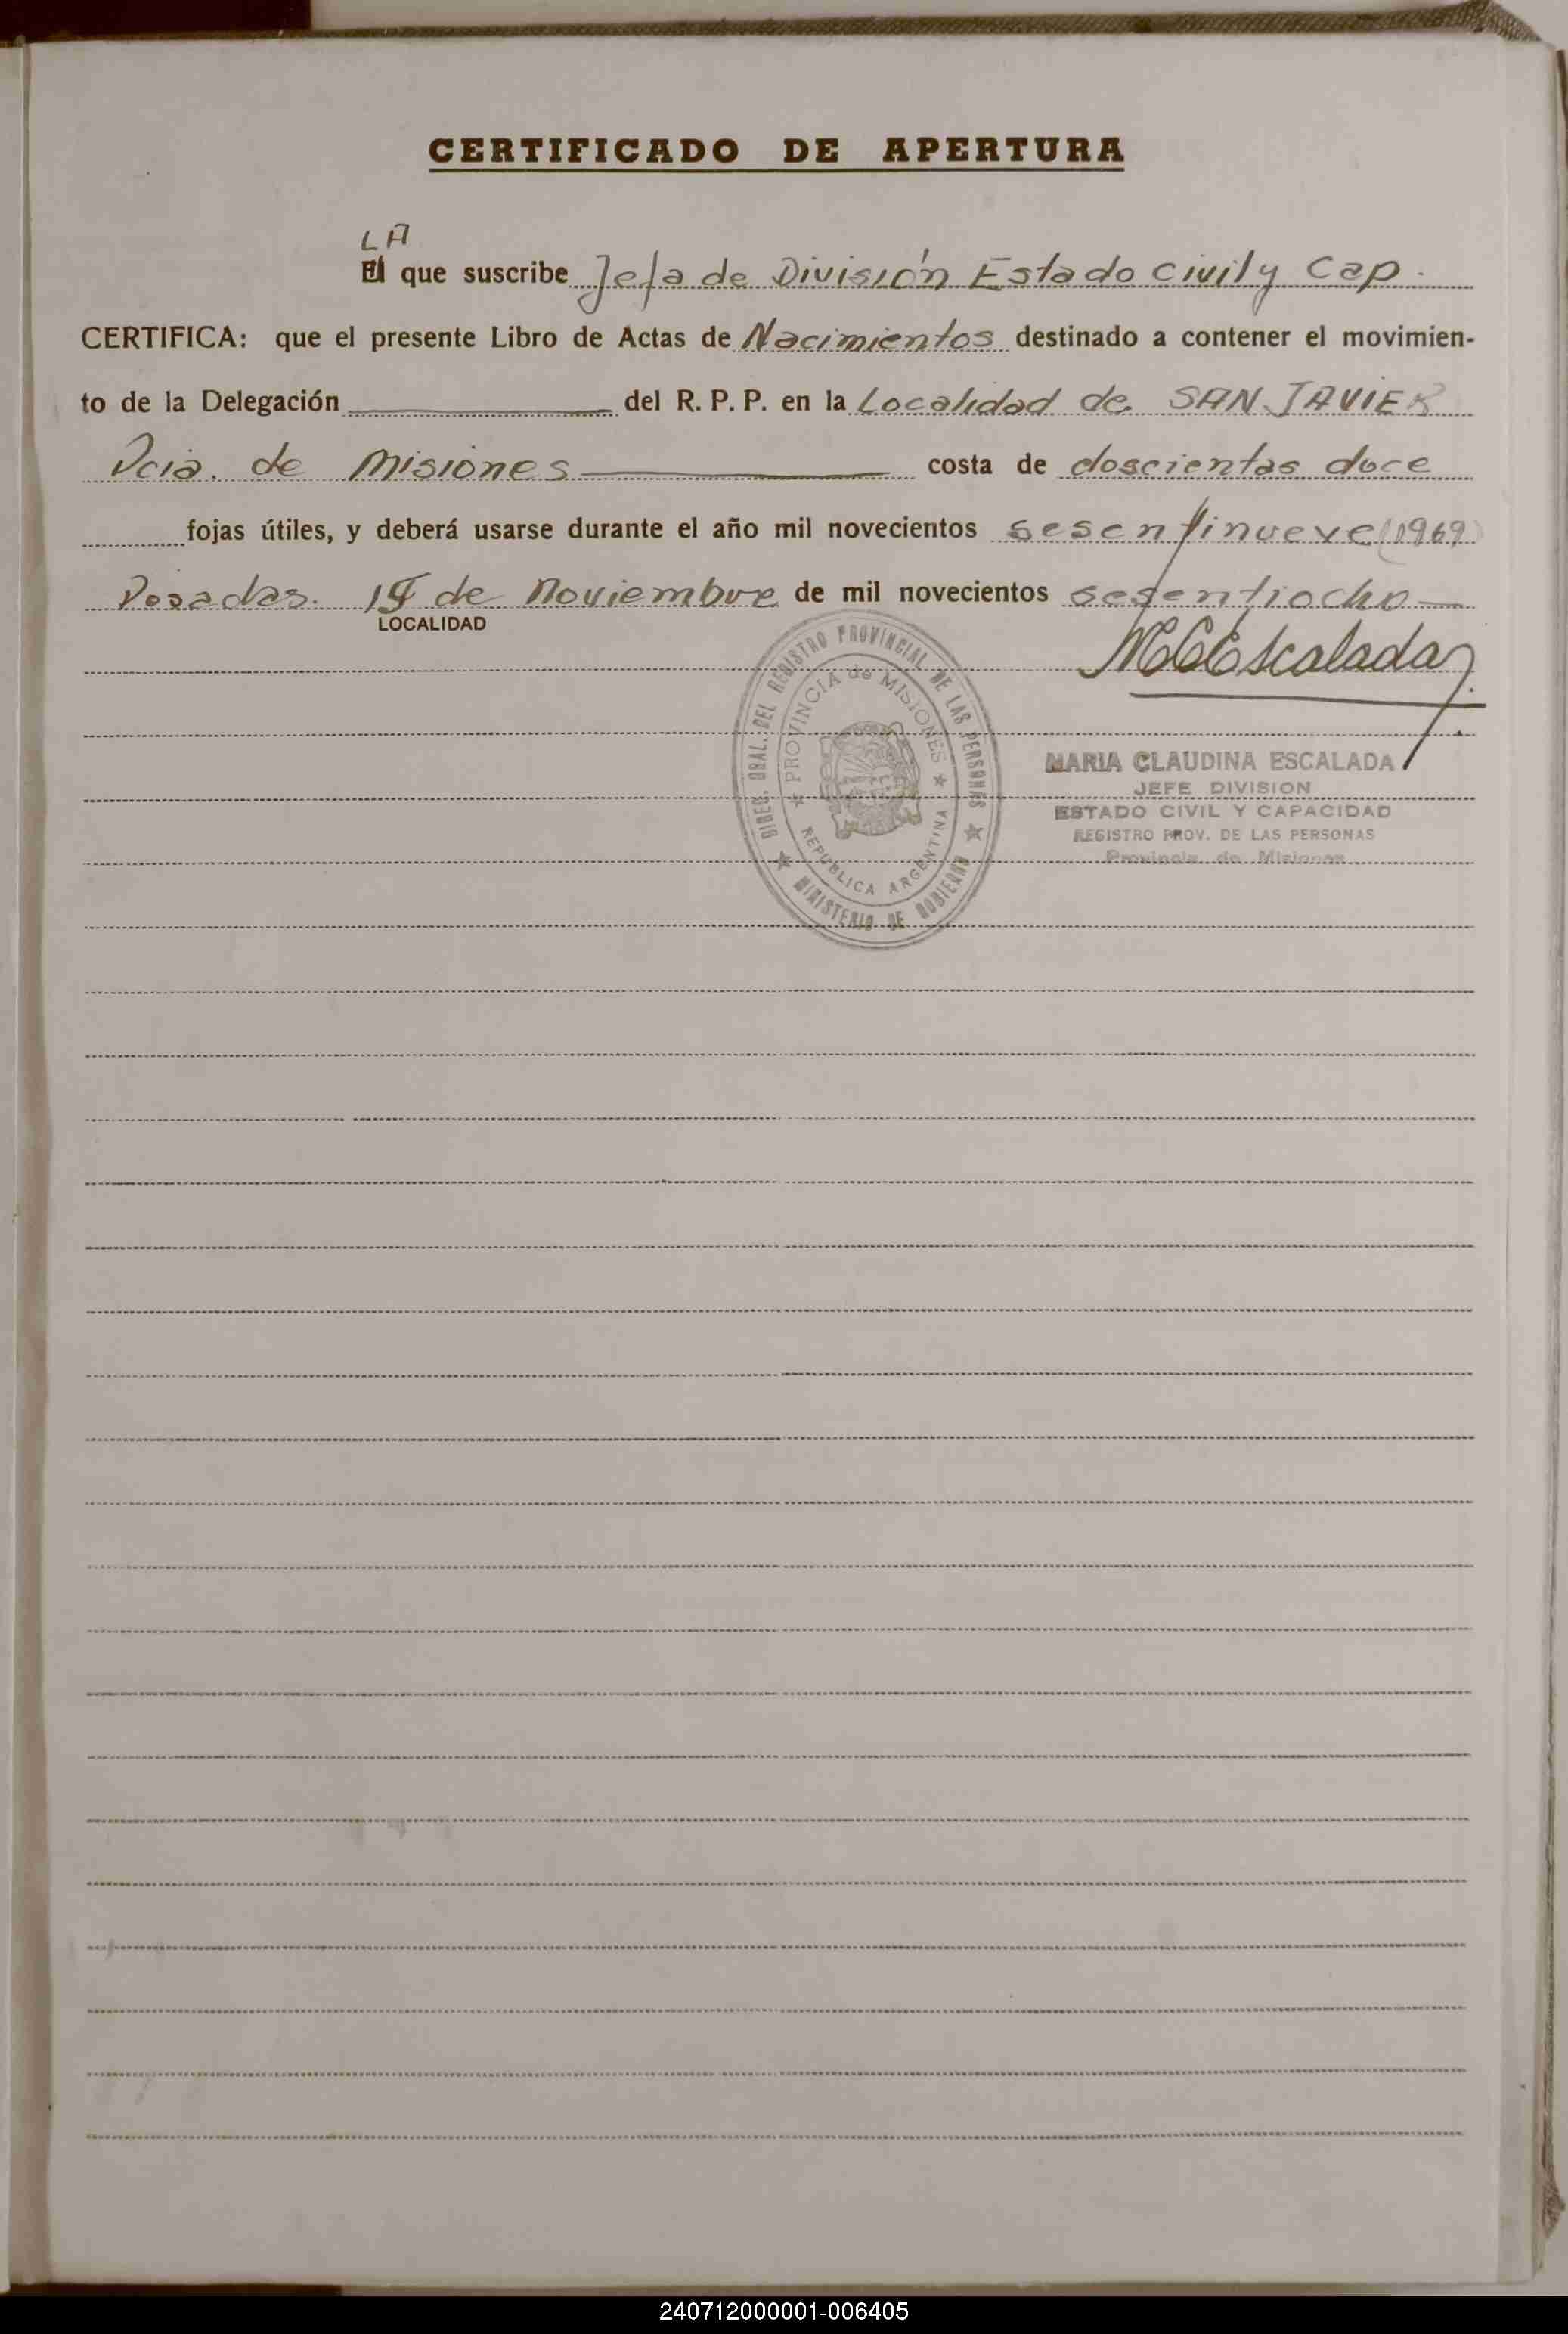 CERTIFICADO DE APERTURA
LA
El que suscribe Jefa de División Estado Civil y Cap.
CERTIFICA: que el presente Libro de Actas de Nacimientos destinado a contener el movimien-
to de la Delegación del R. P. P. en la Localidad de SAN JAVIER
Pcia. de Misiones costa de doscientas doce
fojas útiles, y deberá usarse durante el año mil novecientos sesentinueve (1969)
Posadas. de Noviembre de mil novecientos sesentiocho
LOCALIDAD
MCEscalada
DIREC. GRAL. DEL REGISTRO PROVINCIAL DE LAS PERSONAS
PROVINCIA de MISIONES
REPUBLICA ARGENTINA
MINISTERIO DE GOBIERNO
MARIA CLAUDINA ESCALADA
JEFE DIVISION
ESTADO CIVIL Y CAPACIDAD
REGISTRO PROV. DE LAS PERSONAS
Provincia de Misiones
240712000001-006405